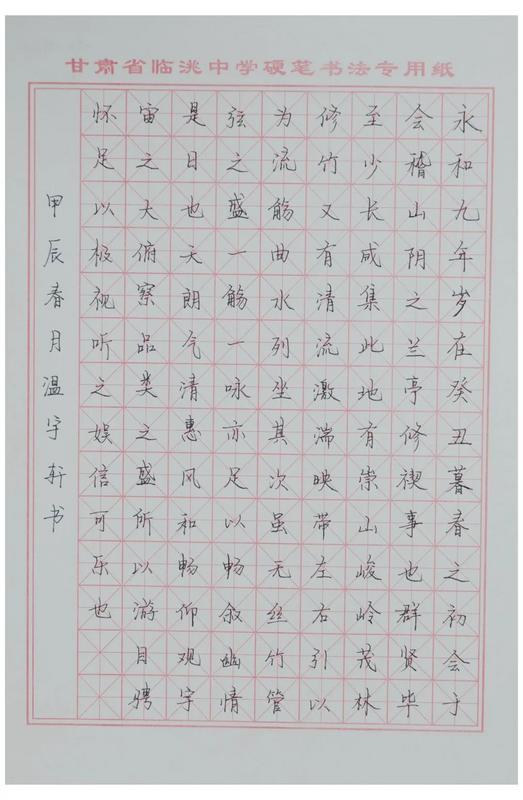 甘肃省临洮中学硬笔书法专用纸
永和九年岁在癸丑暮春之初会于
会稽山阴之兰亭修禊事也群贤毕
至少长咸集此地有崇山峻岭茂林
修竹又有清流激湍映带左右引以
为流觞曲水列坐其次虽无丝竹管
弦之盛一觞一咏亦足以畅叙幽情
是日也天朗气清惠风和畅仰观宇
宙之大俯察品类之盛所以游目骋
怀足以极视听之娱信可乐也
甲辰春月温宇轩书